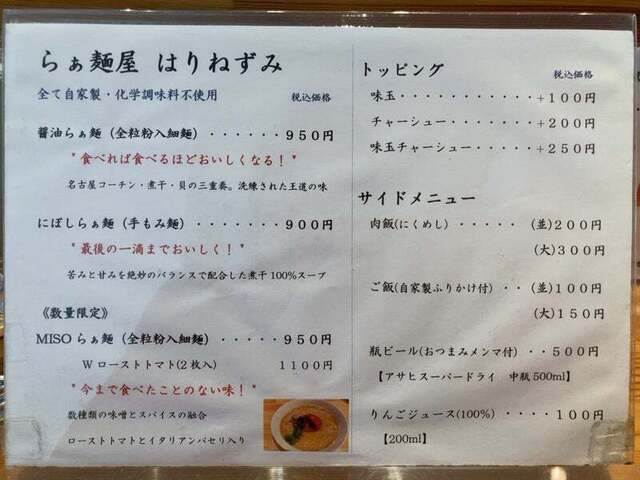 らぁ麺屋 はりねずみ
全て自家製・化学調味料不使用 税込価格
醤油らぁ麺（全粒粉入細麺）・・・・・・950円
"食べれば食べるほどおいしくなる！"
名古屋コーチン・煮干・貝の三重奏。洗練された王道の味
にぼしらぁ麺（手もみ麺）・・・・・・・900円
"最後の一滴までおいしく！"
苦みと甘みを絶妙のバランスで配合した煮干100%スープ
《数量限定》
MISOらぁ麺（全粒粉入細麺）・・・・・950円
Wローストトマト(2枚入) 1100円
"今まで食べたことのない味！"
数種類の味噌とスパイスの融合
ローストトマトとイタリアンパセリ入り
トッピング 税込価格
味玉・・・・・・・・・・・+100円
チャーシュー・・・・・・・+200円
味玉チャーシュー・・・・・+250円
サイドメニュー
肉飯(にくめし) ・・・・・ (並)200円
(大)300円
ご飯(自家製ふりかけ付) ・・ (並)100円
(大)150円
瓶ビール(おつまみメンマ付) ・・500円
【アサヒスーパードライ 中瓶500ml】
りんごジュース(100%) ・・・・100円
【200ml】